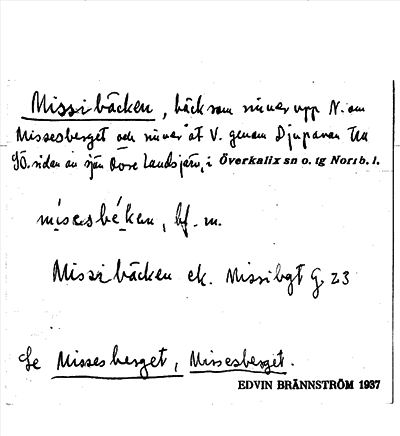 Missibäcken, bäck som rinner upp N. om
Missesberget och rinner åt V. genom Djupavan till
SÖ. sidan av sjön Övre Landsjärv, i Överkalix sn o. tg Norrb. l.
mísesbékan, bf. m.
Missibäcken ek. Missibgt G 23
Se Missesberget, Missesberget.
EDVIN BRÄNNSTRÖM 1937